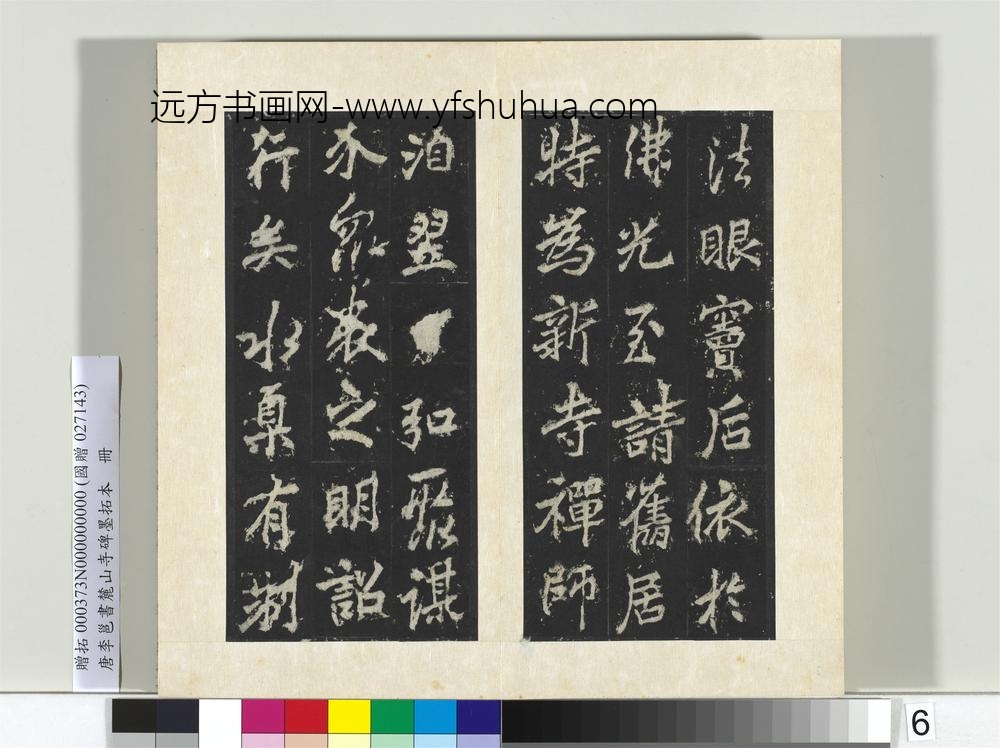 远方书画网-www.yfshuhua.com
法眼竇后依於
佛光至請舊居
特為新寺禪師
洎翌弘聚謀
介眾表之明詔
行矣水臬有制
贈拓 000373N000000000 (國贈 027143)
唐李邕書麓山寺碑墨拓本 冊
6